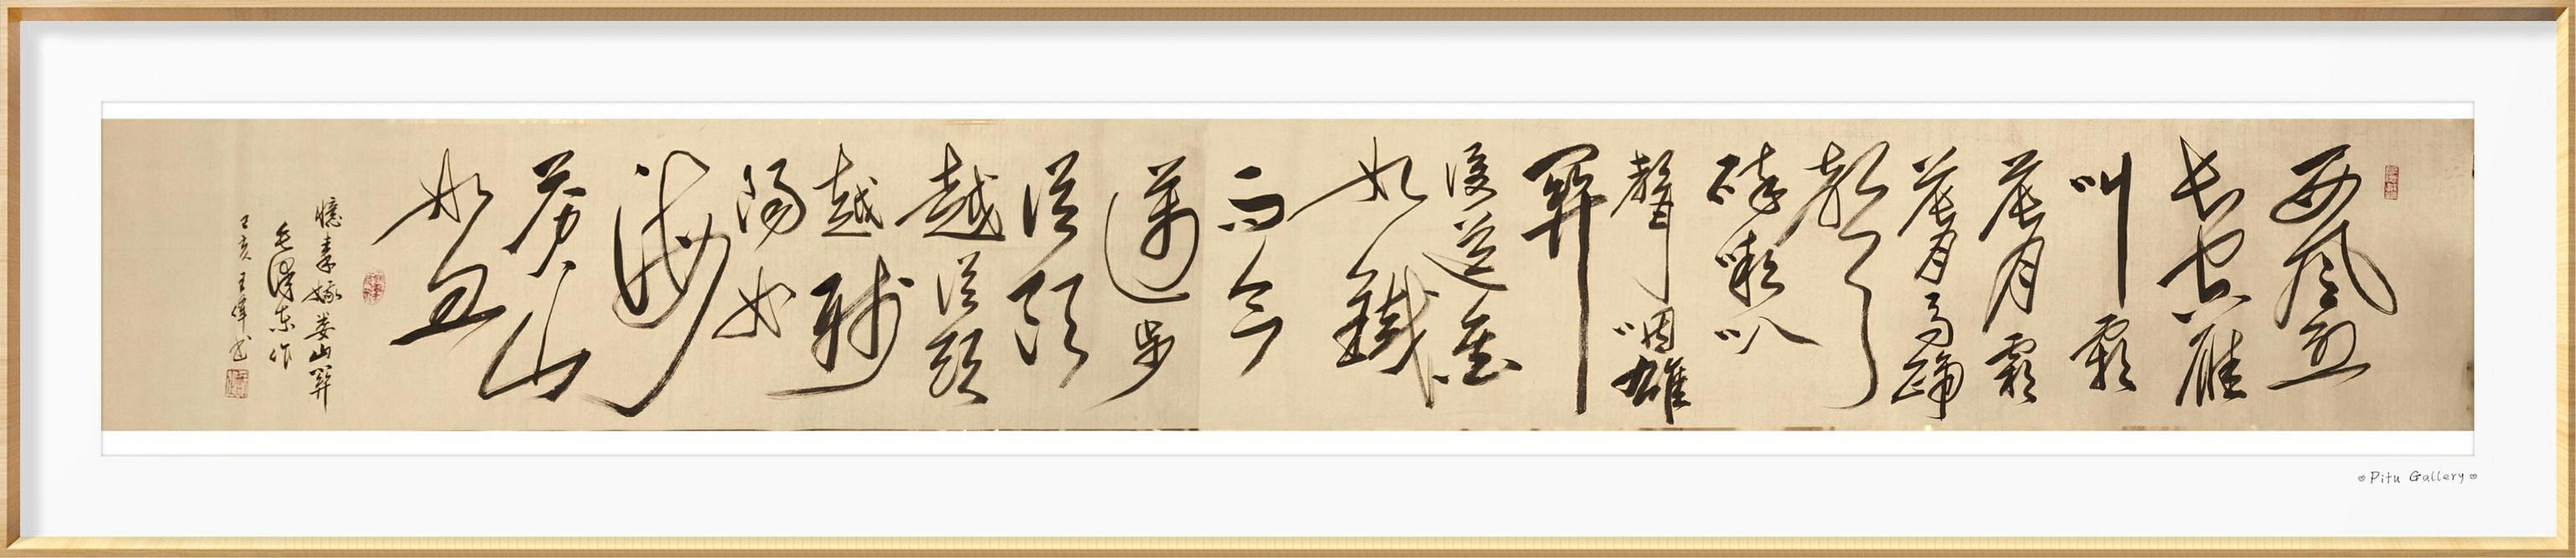 西風烈
長空雁
叫霜
晨月霜
晨月馬蹄
聲
碎喇叭
聲咽雄
關
漫道真
如鐵
而今
邁步
從頭
越從頭
越殘
陽如
海
蒼山
如血
憶秦娥婁山關
毛澤東作
己亥王書
Pitu Gallery